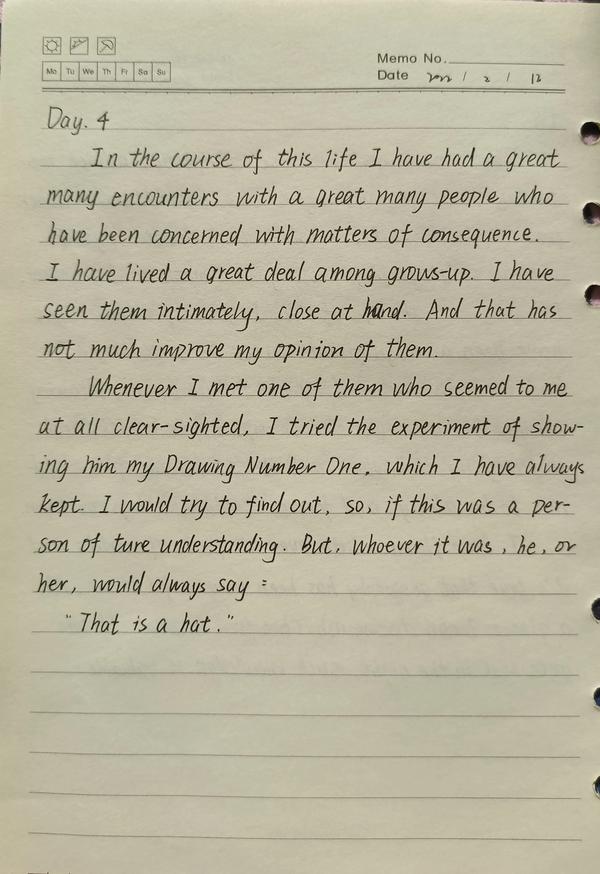 Memo No.
Mo Tu We Th Fr Sa Su
Date 2022 / 2 / 12
Day. 4
In the course of this life I have had a great
many encounters with a great many people who
have been concerned with matters of consequence.
I have lived a great deal among grows-up. I have
seen them intimately, close at hand. And that has
not much improve my opinion of them.
Whenever I met one of them who seemed to me
at all clear-sighted, I tried the experiment of show-
ing him my Drawing Number One, which I have always
kept. I would try to find out, so, if this was a per-
son of ture understanding. But, whoever it was, he, or
her, would always say :
"That is a hat."